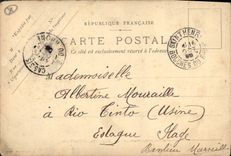 RÉPUBLIQUE FRANÇAISE
CARTE POSTALE
Ce côté est exclusivement réservé à l'adresse
Mademoiselle
Albertine Mouraille
à Rio Tinto (Usine)
Estaque
Banlieue Marseille